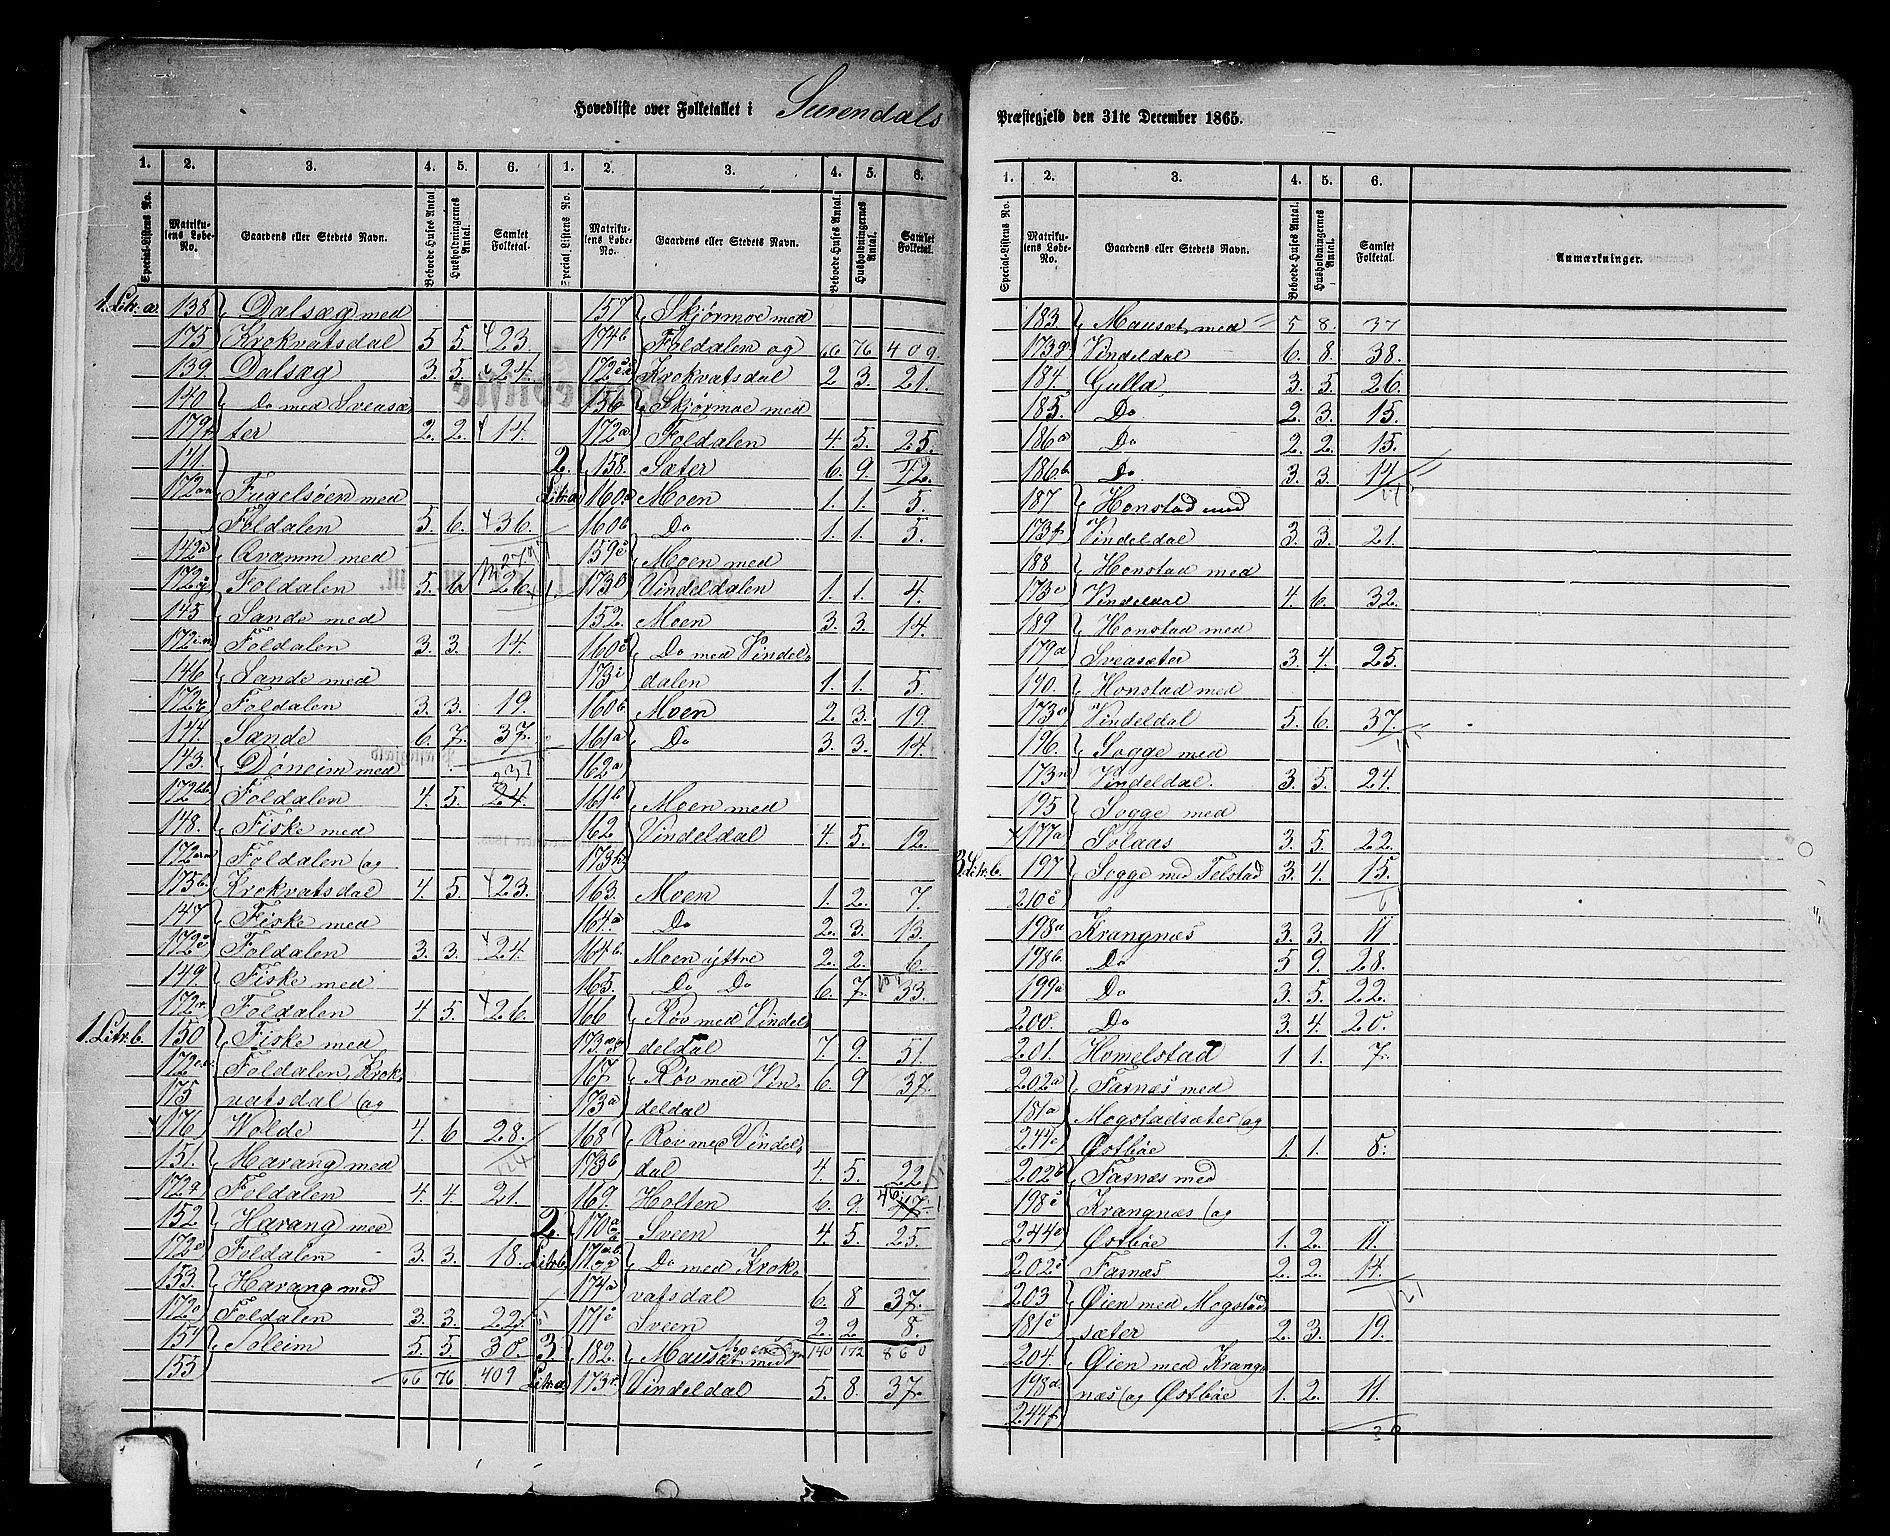 Hovedliste over Folketallet i Surendals
Præstegjeld den 31te December 1865.
1. 2. 3. 4. 5. 6.
Special-Listens No. Matrikulens Løbe-No. Gaardens eller Stedets Navn. Beboede Huses Antal. Husholdningernes Antal. Samlet Folketal.
1. Litr. a. 138 Dalsæg med
175 Krokvatsdal 5 5 23.
139 Dalsæg 3. 5. 24.
140 Do med Sveasæ
179 ter 2. 2. 14.
141
172 Fugelsøen med
Foldalen 5. 6. 36.
142a Qvamm med
172 Foldalen 5. 6. 26.
145 Sande med
172 Foldalen 3. 3. 14.
146 Sande med
172 Foldalen 3. 3. 19.
144. Sande 6. 7. 37.
143. Døneim med
237
172 Foldalen 4. 5. 24.
148. Fiske med
172 Foldalen og
175b. Krokvatsdal 4. 5. 23.
147 Fiske med
172 Foldalen 3. 3. 24.
149. Fiske med
172 Foldalen 4 5. 26.
1. Litr. b. 150 Fiske med
172 Foldalen, Krok-
175 vatsdal og
176 Wolde 4. 6 28.
124
151. Harang med
172 Foldalen 4. 4. 21.
152 Harang med
172 Foldalen 3. 3. 18.
153. Harang med
172 Foldalen 3. 3. 22.
154 Soleim 5. 5. 30.
155 66 76 409
1. 2. 3. 4. 5. 6.
Special-Listens No. Matrikulens Løbe-No. Gaardens eller Stedets Navn. Beboede Huses Antal. Husholdningernes Antal. Samlet Folketal.
157 Skjørmoe med
174b Foldalen og 66 76 409.
172 Krokvatsdal 2 3. 21.
156 Skjørmoe med
172 Foldalen 4. 5. 25.
2. 158. Sæter 6. 9. 42.
Litr. a 160a Moen 1. 1. 5.
160b Do 1. 1. 5.
159 Moen med
173 Vindeldalen 1. 1. 4.
152. Moen 3. 3. 14.
160 Do med Vindel-
173i dalen 1. 1. 5.
160b Moen 2 3. 19.
161a Do 3. 3. 14.
162a
161b Moen med
162 Vindeldal 4. 5. 12.
173
163. Moen 1. 2. 7.
164a Do 2. 3. 13.
164b. Moen ÿttre 2. 2. 6.
165. Do Do 6. 7. 33.
166 Røv med Vindel
173 deldal 7. 9. 51.
167 Røv med Vin- 6. 9 37.
173a deldal
168 Røv med Vindel
173b dal 4. 5. 22
169. Holten 6. 9. 46. 47.
2. 170 Sveen 4. 5. 25.
Litr. b 171 Do med Krok-
174a vatsdal 6. 8 37.
171 Sveen 2. 2 8.
3 182. Mauset med 140 172 860
Litr. a 173 Vindeldal 5. 8. 37.
1. 2. 3. 4. 5. 6.
Special-Listens No. Matrikulens Løbe-No. Gaardens eller Stedets Navn. Beboede Huses Antal. Husholdningernes Antal. Samlet Folketal. Anmærkninger.
183. Mauset med 5 8. 37
173g Vindeldal 6. 8. 38.
184. Gulla 3. 5. 26.
185. Do 2. 3. 15.
186a Do 2. 2. 15.
186b. Do 3. 3. 14
187 Honstad med
173 Vindeldal 3. 3. 21.
188 Honstad med
173 Vindeldal 4. 6. 32.
189 Honstad med
179a Sveasæter 3. 4. 25.
190. Honstad med
173 Vindeldal 5. 6. 37.
196. Sogge med
173 Vindeldal. 3. 5. 24.
195 Sogge med
177a Solaas 3. 5. 22.
3 Litr. b. 197 Sogge med Telstad 3. 4. 15.
210
198a Krangnæs 3. 3. 11
198b. Do 5 9. 28.
199a Do 3. 5. 22.
200. Do 3. 4. 20.
201. Homelstad 1 1. 7.
202a Farnæs med
181a Mogstadsæter og
244 Østbøe 1. 1. 8.
202b Farnæs med
198 Krangnæs og
244 Østbøe 1. 2. 11.
202 Farnæs 2. 2. 14.
121
203 Øien med Mogstad
181 sæter 2. 3. 19.
204. Øien med Krang-
198d. næs og Østbøe 1. 2. 11.
244f